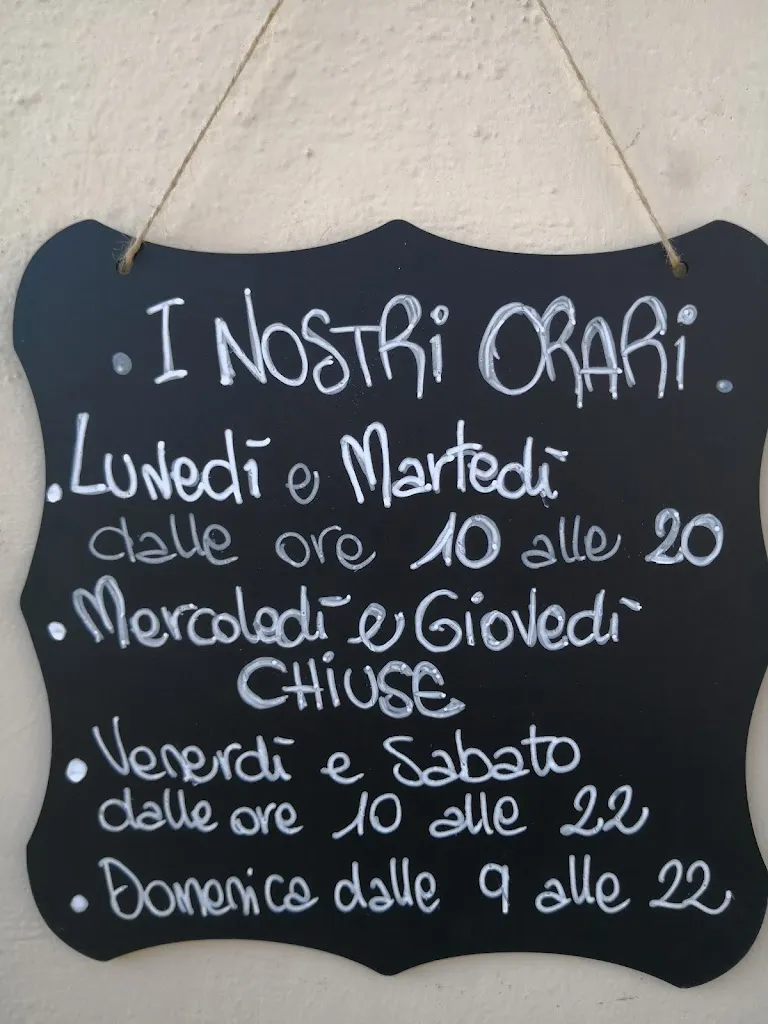 . I NOSTRi ORARi .
. Lunedì e Martedì
dalle ore 10 alle 20
. Mercoledì e Giovedì
CHiUSE
. Venerdì e Sabato
dalle ore 10 alle 22
. Domenica dalle 9 alle 22